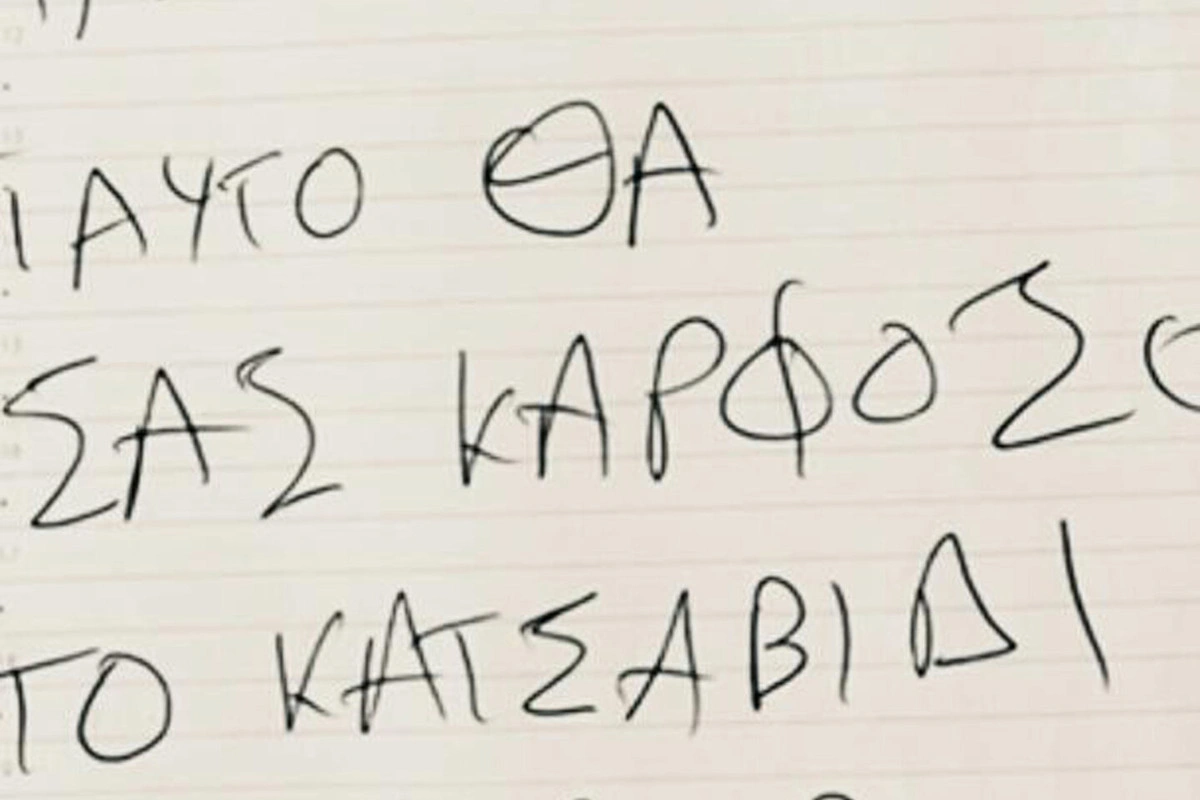 ΙΑΥΤΟ ΘΑ
ΣΑΣ ΚΑΡΦΟΣΟ
ΤΟ ΚΑΤΣΑΒΙΔΙ